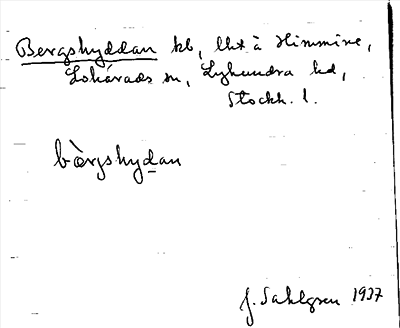 Bergshyddan kb, lht à Himmine,
Lohärads sn, Lyhundra hd,
Stockh. l.
bærgshydan
J. Sahlgren 1937